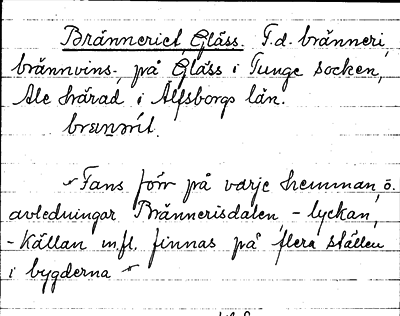 Brännerict, Gläss. F.d. bränneri,
brännvins-, på Gläss i Tunge socken,
Ale härad i Älfsborgs län.
brɛnərít.
"Fans förr på varje hemman, o.
avledningar Brännerisdalen - lyckan,
- Källan m.fl. finnas på flera ställen
i bygderna"